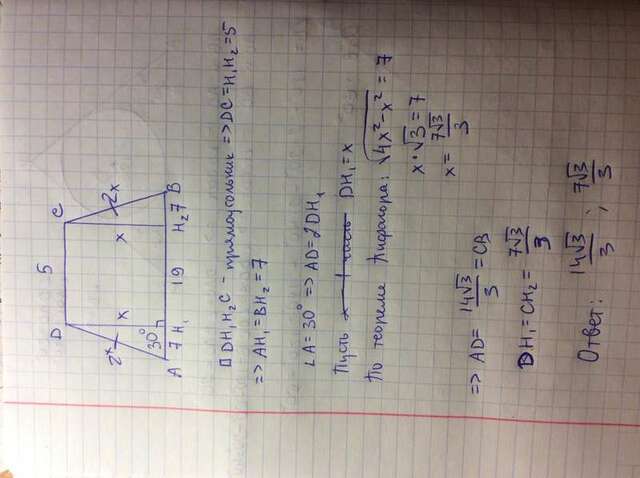 5
D C
2x x x 2x
30°
A 7 H₁ 19 H₂ 7 B
□ DH₁H₂C - прямоугольник => DC = H₁H₂ = 5
=> AH₁ = BH₂ = 7
∠A = 30° => AD = 2DH₁
Пусть x - 1 часть DH₁ = x
По теореме Пифагора: √(4x² - x²) = 7
x · √3 = 7
x = 7√3/3
=> AD = 14√3/3 = CB
DH₁ = CH₂ = 7√3/3
Ответ: 14√3/3 ; 7√3/3